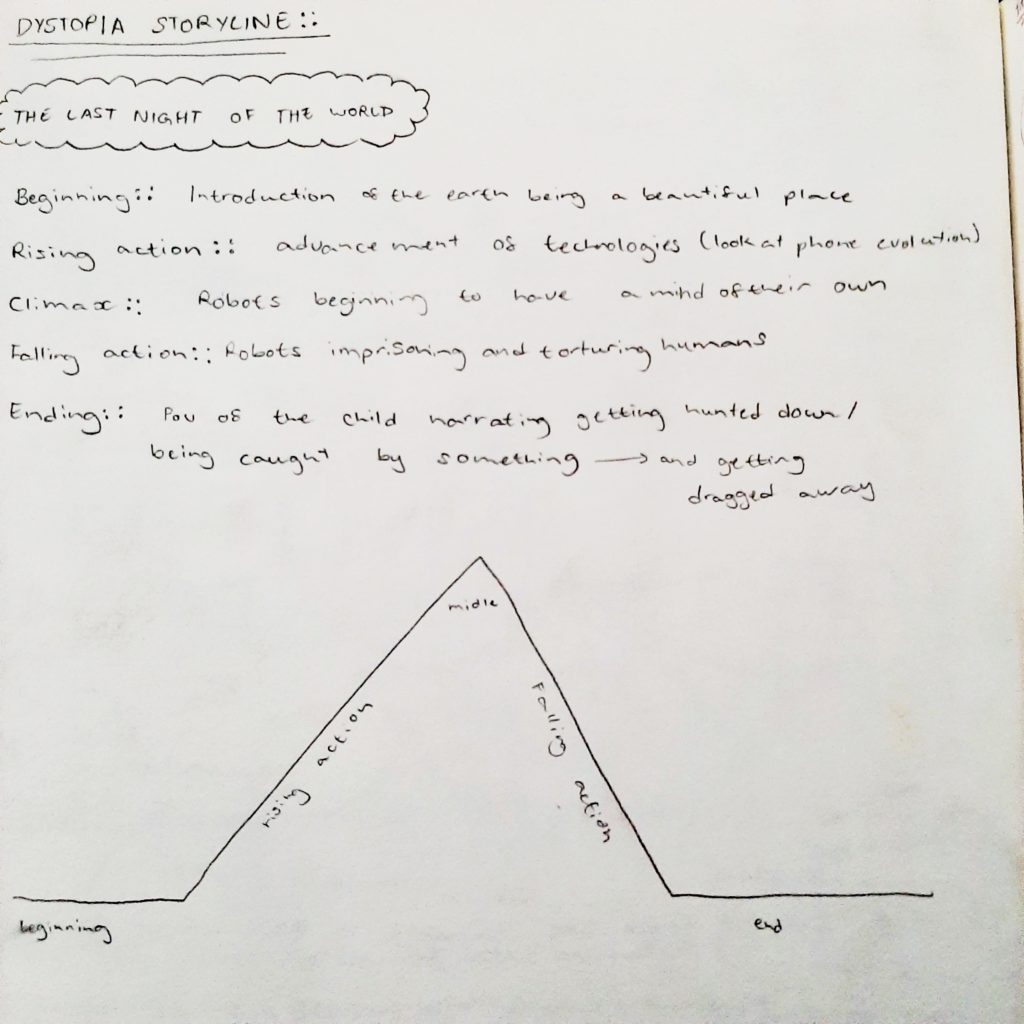 DYSTOPIA STORYLINE::
THE LAST NIGHT OF THE WORLD
Beginning:: Introduction of the earth being a beautiful place
Rising action:: advancement of technologies (look at phone evolution)
Climax:: Robots beginning to have a mind of their own
Falling action:: Robots imprisoning and torturing humans
Ending:: Pov of the child narrating getting hunted down/
being caught by something → and getting
dragged away
midle
rising action
Falling action
beginning
end